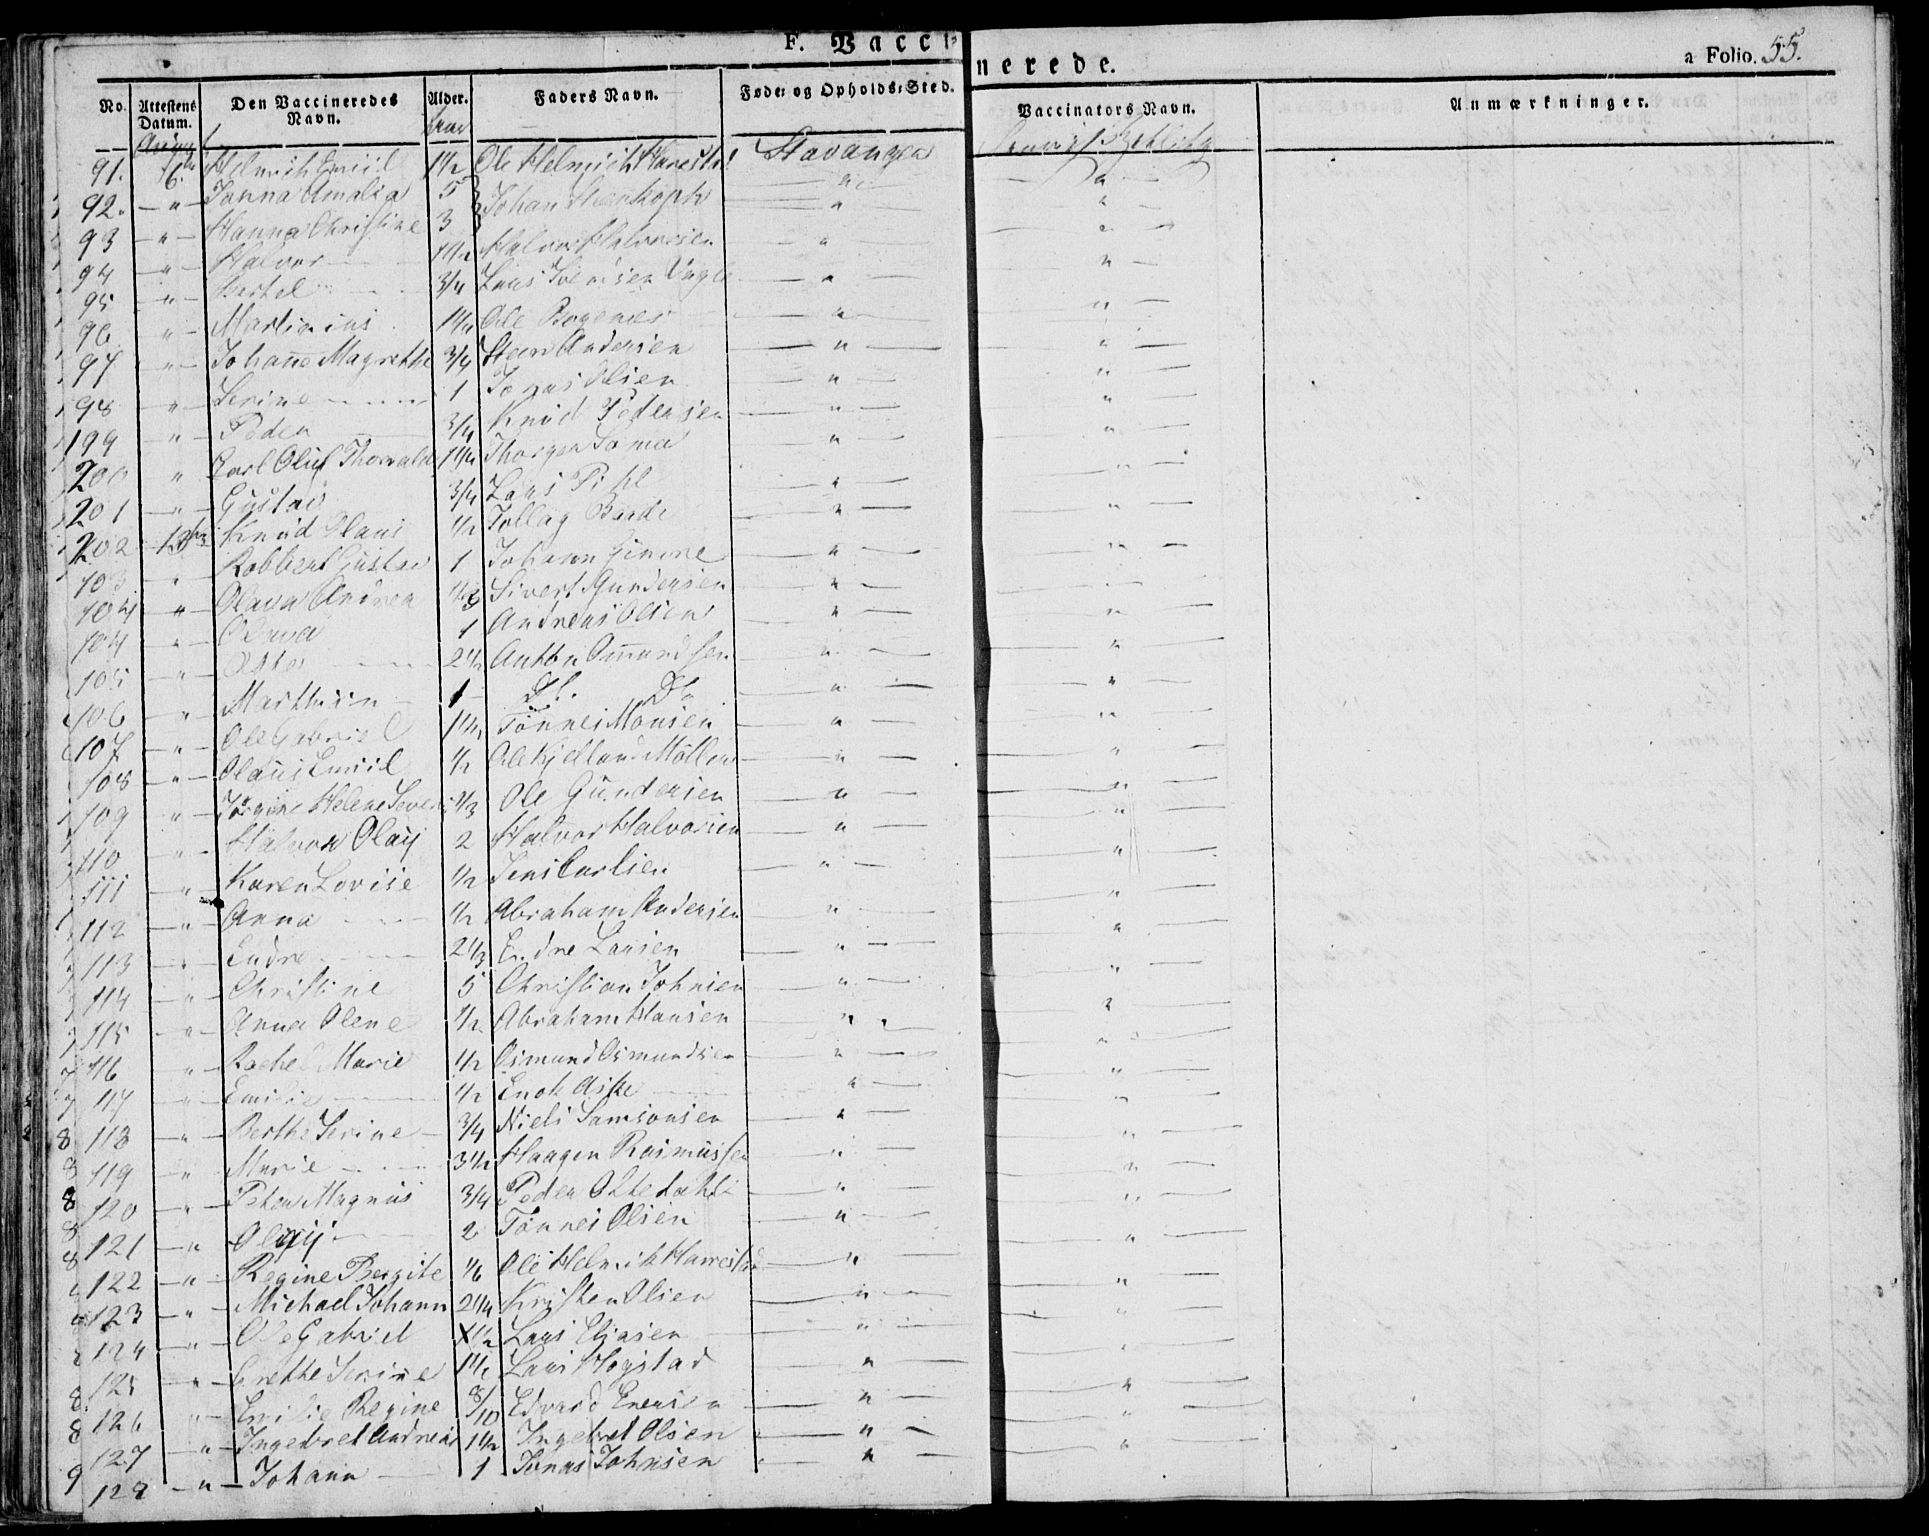 F. Vaccinerede.
a Folio. 55.
No. Attestens Datum. Den Vaccineredes Navn. Alder. Faders Navn. Føde- og Opholds-Sted. Vaccinators Navn. Anmærkninger.
91. 16de Helmich Emiil 1 1/2 Ole Helmich Harestad Stavanger
92. " Janna Amalia 5 Johan " "
93 " Hanna Christine 3 " "
94 " Halvor 1 1/2 Halvor Halvorsen " "
95 " Bertel 3/4 Lars Svendsen Vagle " "
96 " Martinius 1 1/4 Ole Bogenes " "
97 " Johane Magrethe 3/4 Steen Andersen " "
98 " Serine 1 Jonas Olsen " "
199 " Peder 3/4 Knud Pedersen " "
200 " Karl Oluf Thorvald 1 1/4 Thorger Soma " "
201 " Gustav 3/4 Lars Pihl " "
202 Knud Olaus 1/2 Tollag Barde " "
103 " Robbert Gustav 1 Johann Gimre " "
104 " Olava Andrea Sivert Gundersen " "
104 " Olava 1 Andreas Olsen " "
105 " 2 1/2 Anton Omundsen " "
106 " Marthiin 1 Do. Do. " "
107 " Ole Gabriel 1 1/2 Tönnes Monsen " "
108 " Olaus Emiil 1/2 Ole Kjelland Möller " "
109 " Jörgine Helene Severi 1/3 Ole Gundersen " "
110 " Halvor Olaij 2 Halvor Halvorsen " "
111 " Karen Lovise 1/2 Jens Carlsen " "
112 " Anna 1/2 Abraham Andersen " "
113 " Endre 2 1/3 Endre Larsen " "
114 " Christine 5 Christian Johnsen " "
115 " Anna Olene 1/2 Abraham Hansen " "
116 " Rachel Marie 1/2 Osmund Osmundsen " "
117 " Emilie 1/2 Enok Aske " "
118 " Berthe Serine 3/4 Niels Samsonsen " "
119 " Marie 3 1/2 Haagen Rasmussen " "
120 " Peter Magnus 3/4 Peder Oltedahl " "
121 " Olaij 2 Tönnes Olsen " "
122 " Regine Bergite 1/6 Ole Helmik Harrestad " "
123 " Michael Johann 2 1/4 Kristen Olsen " "
124 " Ole Gabriel 1 1/2 Lars Eliasen " "
125 " Grethe Serine 1 1/2 Lars Hogstad " "
126 " Emilie Regine 8/10 Edvard Enersen " "
127 " Ingebret Andreas 1 1/2 Ingebret Olsen " "
128 " Johann 1 Jonas Johnsen "